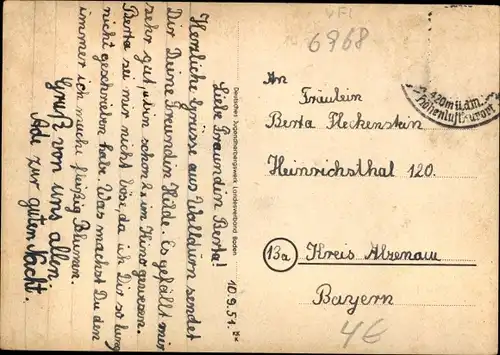 10.9.51.
Liebe Freundin Berta!
Herzliche Grüsse aus Walldürn sendet
Dir Deine Freundin Hilde. Es gefällt mir
sehr gut, bin schon 2 x im Kino gewesen.
Berta sei mir nicht böse, da ich Dir so lang
nicht geschrieben habe. Was machst Du den
immer ich mache fleißig Blumen.
Gruß von uns allen
Ade zur guten Nacht.
Deutsches Jugendherbergswerk Landesverband Baden
6968
420 m ü.d.M.
Höhenluftkurort
An
Fräulein
Berta Fleckenstein
Heinrichsthal 120.
13a Kreis Alzenau
Bayern
4€